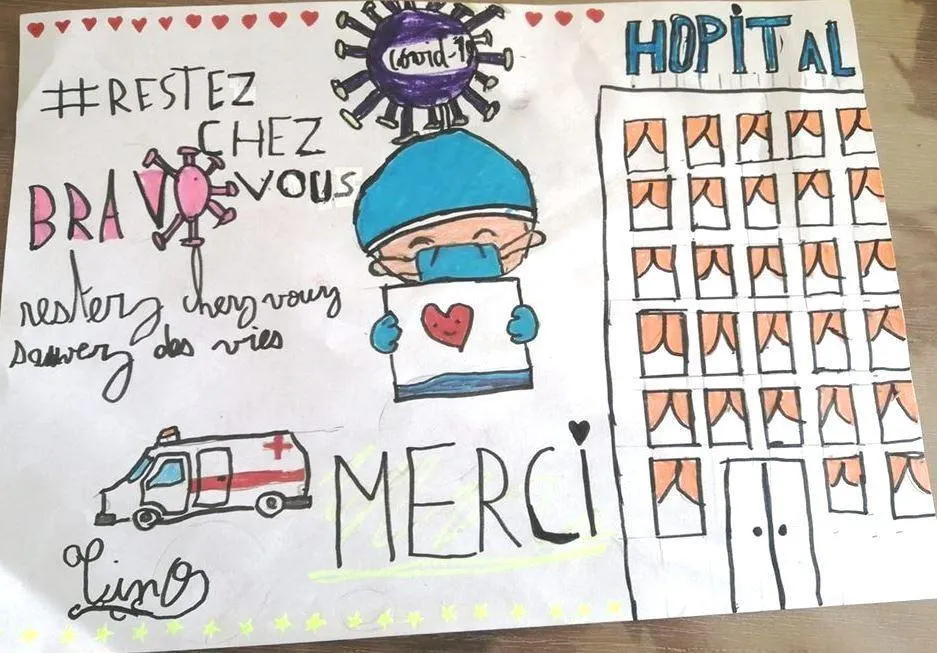 covid-19
HOPITAL
#RESTEZ
CHEZ
VOUS
BRAVO
restez chez vous
sauvez des vies
MERCI
Lino